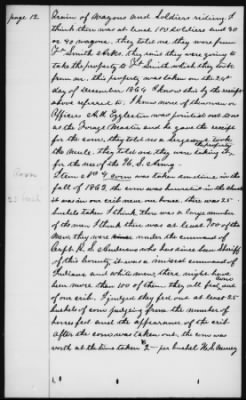 page 12
Train of Wagons and Soldiers riding. I
think there was at least 100 soldiers and 30
or 40 wagons. they told me they were from
Ft Smith Arks. They said they were going to
take the property to Ft Smith which they took
from me. this property was taken on the 24th
day of December 1864 I know this by the receipt
above referred to. I know none of the men or
Officers A.H. Eggleston was pointed out to me
as the Forage Master and he gave the receipt
for the corn, they told me a sergeant took
the mule. They told me they were taking the property
for the use of the U. S. Army.
Corn
Item No 4 corn was taken sometime in the
fall of 1863. the corn was
25 bush
it was in our crib near our house, there was 25
bushels taken I think. there was a large number
of the men I think there was at least 100 of the
Men, they were under the command of
Capt. R. S. Anderson who has since been Sheriff
of this County, it was a mixed command of
Indians and white men, there might have
been more than 100 of them they all fed out
of our crib. I judged they fed out at least 25
bushels of corn judging from the number of
horses fed and the appearance of the crib
after the corn was taken out. the corn was
worth at the time taken $2 00 per bushel U. S. Money